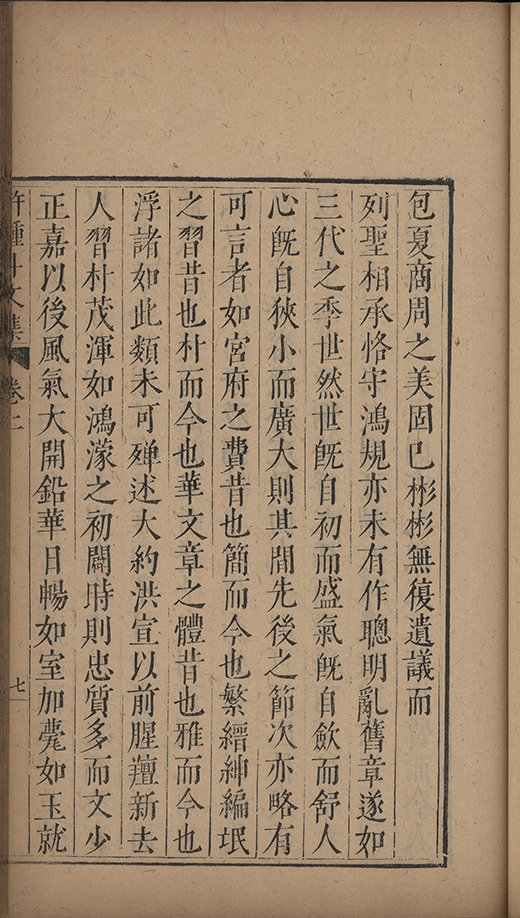 包夏商周之美固已彬彬無復遺議而
列聖相承恪守鴻規亦未有作聰明亂舊章遂如
三代之季世然世既自初而盛氣既自歛而舒人
心既自狹小而廣大則其間先後之節次亦略有
可言者如宮府之費昔也簡而今也繁縉紳編氓
之習昔也朴而今也華文章之體昔也雅而今也
浮諸如此類未可殫述大約洪宣以前腥羶新去
人習朴茂渾如鴻濛之初闢時則忠質多而文少
正嘉以後風氣大開鉛華日暢如室加甍如玉就
許鍾斗文集 卷二 七